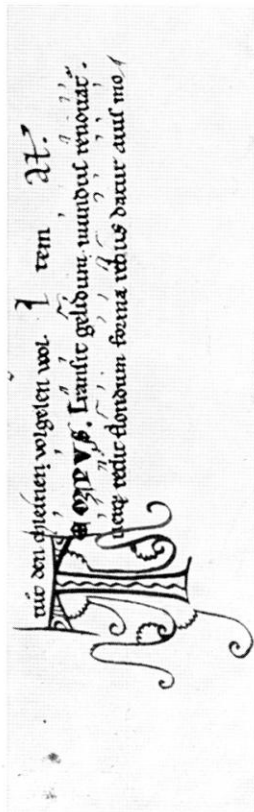 mit den chleinen volgelen wol. Item al.
TEMPVS. transit gelidum. mundus renouat̄.
uerq; redit floridum forma rebus datur auis mo